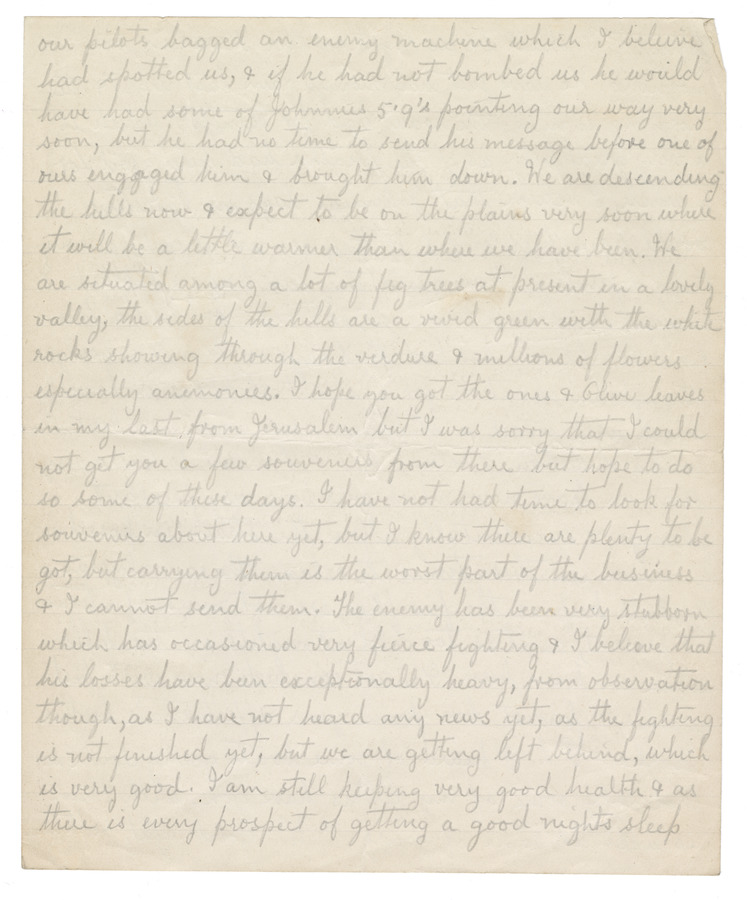 our pilots bagged an enemy machine which I beleive
had spotted us, & if he had not bombed us he would
have had some of Johnnies 5.9's pointing our way very
soon, but he had no time to send his message before one of
ours engaged him & brought him down. We are descending
the hills now & expect to be on the plains very soon where
it will be a little warmer than where we have been. We
are situated among a lot of fig trees at present in a lovely
valley, the sides of the hills are a vivid green with the white
rocks showing through the verdure & millions of flowers
especially anemonies. I hope you got the ones & Olive leaves
in my last, from Jerusalem but I was sorry that I could
not get you a few souvenirs from there but hope to do
so some of these days. I have not had time to look for
souvenirs about here yet, but I know there are plenty to be
got, but carrying them is the worst part of the business
& I cannot send them. The enemy has been very stubborn
which has occasioned very fierce fighting & I beleive that
his losses have been exceptionally heavy, from observation
though, as I have not heard any news yet, as the fighting
is not finished yet, but we are getting left behind, which
is very good. I am still keeping very good health & as
there is every prospect of getting a good nights sleep